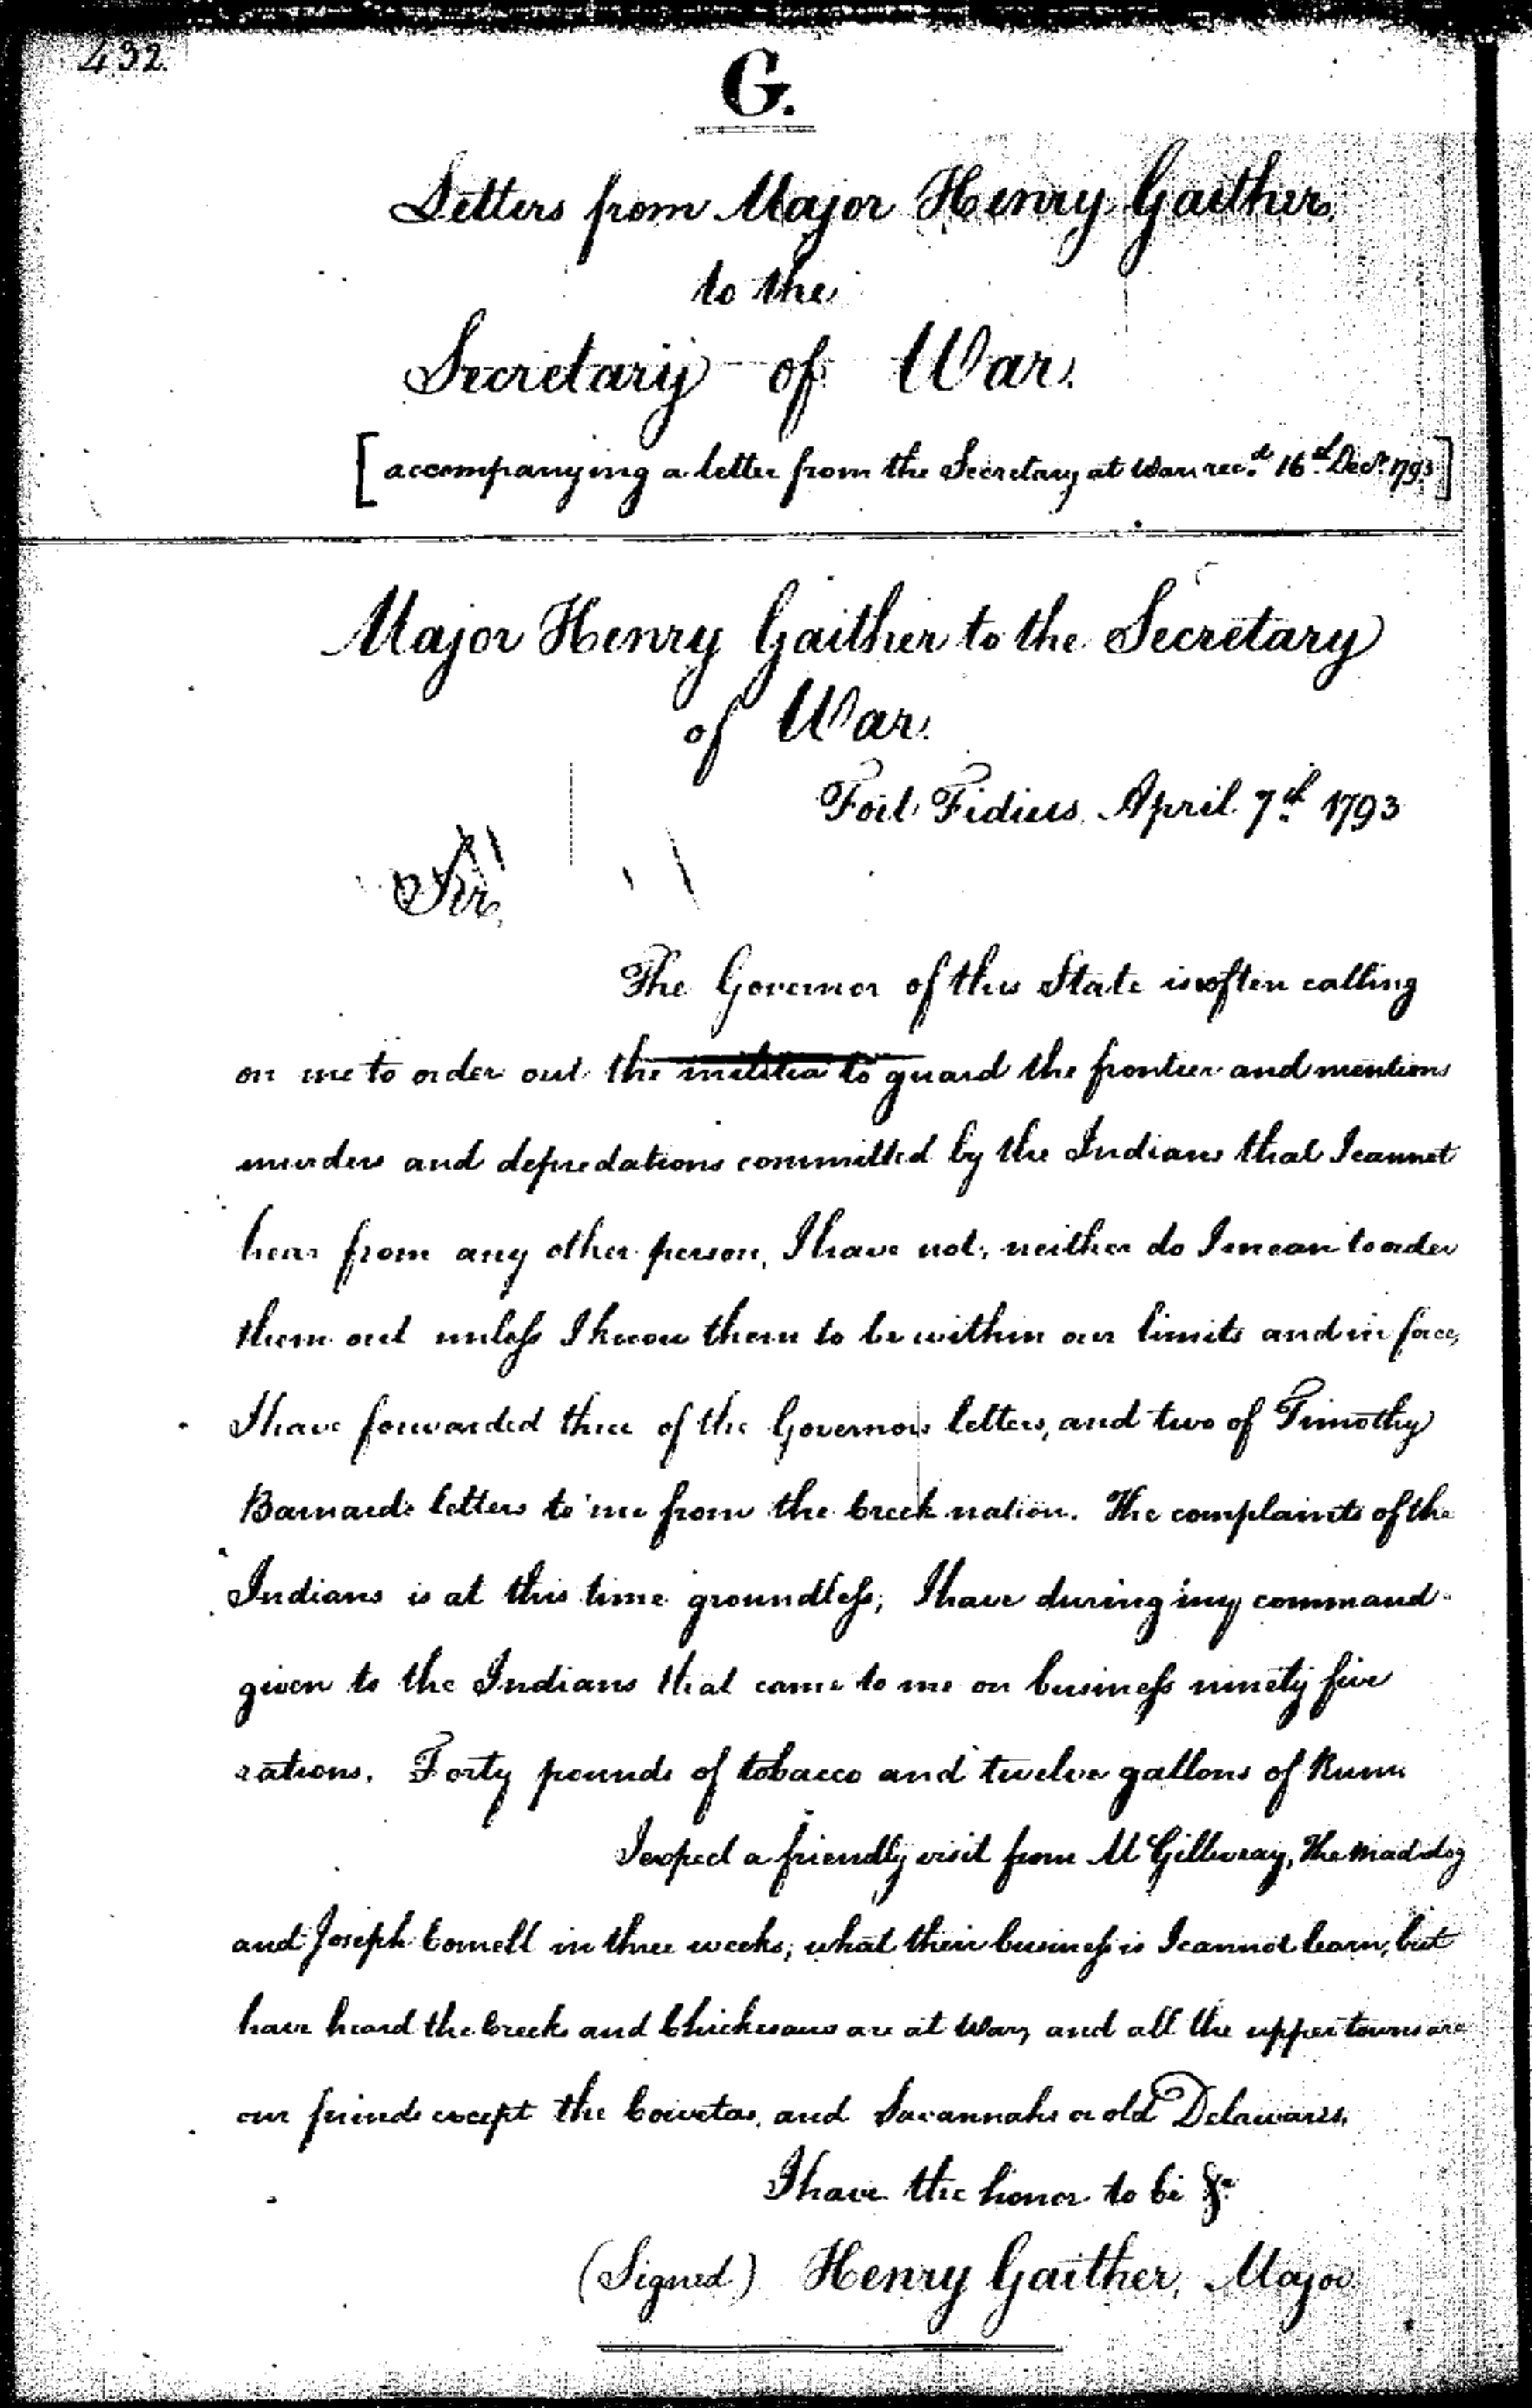 432
G.
Letters from Major Henry Gaither
to the
Secretary of War.
[accompanying a letter from the Secretary at War rec.d 16th Decr. 1793]
Major Henry Gaither to the Secretary
of War.
Fort Fidius April 7th 1793
Sir,
The Governor of this State is often calling
on me to order out the militia to guard the frontier and mentions
murders and depredations committed by the Indians that I cannot
hear from any other person, I have not, neither do I mean to order
them out unless I know them to be within our limits and in force,
I have forwarded three of the Governors letters, and two of Timothy
Barnards letters to me from the Creek nation. The complaints of the
Indians is at this time groundless, I have during my command
given to the Indians that came to me on business ninety five
rations. Forty pounds of tobacco and twelve gallons of Rum.
I expect a friendly visit from McGillivray, The Mad dog
and Joseph Cornell in three weeks, what their business is I cannot learn, but
have heard the Creeks and Chickesaws are at War, and all the upper towns are
our friends except the Cowetas, and Savannahs or old Delawares.
I have the honor to be &c
(Signed) Henry Gaither, Major